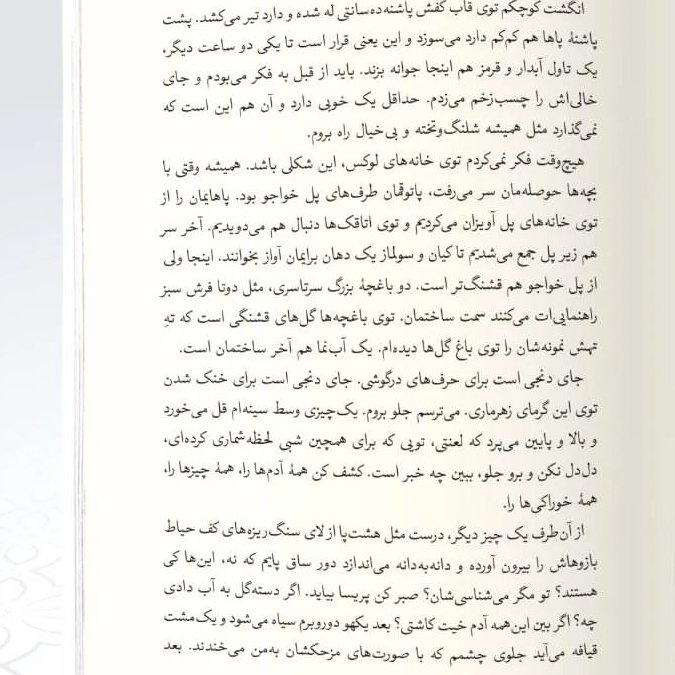 انگشت کوچکم توی قاب کفش پاشنه‌ده‌سانتی له شده و دارد تیر می‌کشد. پشت
پاشنهٔ پاها هم کم‌کم دارد می‌سوزد و این یعنی قرار است تا یکی دو ساعت دیگر،
یک تاول آبدار و قرمز هم اینجا جوانه بزند. باید از قبل به فکر می‌بودم و جای
خالی‌اش را چسب‌زخم می‌زدم. حداقل یک خوبی دارد و آن هم این است که
نمی‌گذارد مثل همیشه شلنگ‌وتخته و بی‌خیال راه بروم.
هیچ‌وقت فکر نمی‌کردم توی خانه‌های لوکس، این شکلی باشد. همیشه وقتی با
بچه‌ها حوصله‌مان سر می‌رفت، پاتوقمان طرف‌های پل خواجو بود. پاهایمان را از
توی خانه‌های پل آویزان می‌کردیم و توی اتاقک‌ها دنبال هم می‌دویدیم. آخر سر
هم زیر پل جمع می‌شدیم تا کیان و سولماز یک دهان برایمان آواز بخوانند. اینجا ولی
از پل خواجو هم قشنگ‌تر است. دو باغچهٔ بزرگ سرتاسری، مثل دوتا فرش سبز
راهنمایی‌ات می‌کنند سمت ساختمان. توی باغچه‌ها گل‌های قشنگی است که تهِ
تهش نمونه‌شان را توی باغ گل‌ها دیده‌ام. یک آب‌نما هم آخر ساختمان است.
جای دنجی است برای حرف‌های درگوشی. جای دنجی است برای خنک شدن
توی این گرمای زهرماری. می‌ترسم جلو بروم. یک‌چیزی وسط سینه‌ام قل می‌خورد
و بالا و پایین می‌پرد که لعنتی، تویی که برای همچین شبی لحظه‌شماری کرده‌ای،
دل‌دل نکن و برو جلو، ببین چه خبر است. کشف کن همهٔ آدم‌ها را، همهٔ چیزها را،
همهٔ خوراکی‌ها را.
از آن‌طرف یک چیز دیگر، درست مثل هشت‌پا از لای سنگ‌ریزه‌های کف حیاط
بازوهاش را بیرون آورده و دانه‌به‌دانه می‌اندازد دور ساق پایم که نه، این‌ها کی
هستند؟ تو مگر می‌شناسی‌شان؟ صبر کن پریسا بیاید. اگر دسته‌گل به آب دادی
چه؟ اگر بین این‌همه آدم خیت کاشتی؟ بعد یکهو دوروبرم سیاه می‌شود و یک‌مشت
قیافه می‌آید جلوی چشمم که با صورت‌های مزحکشان به‌من می‌خندند. بعد